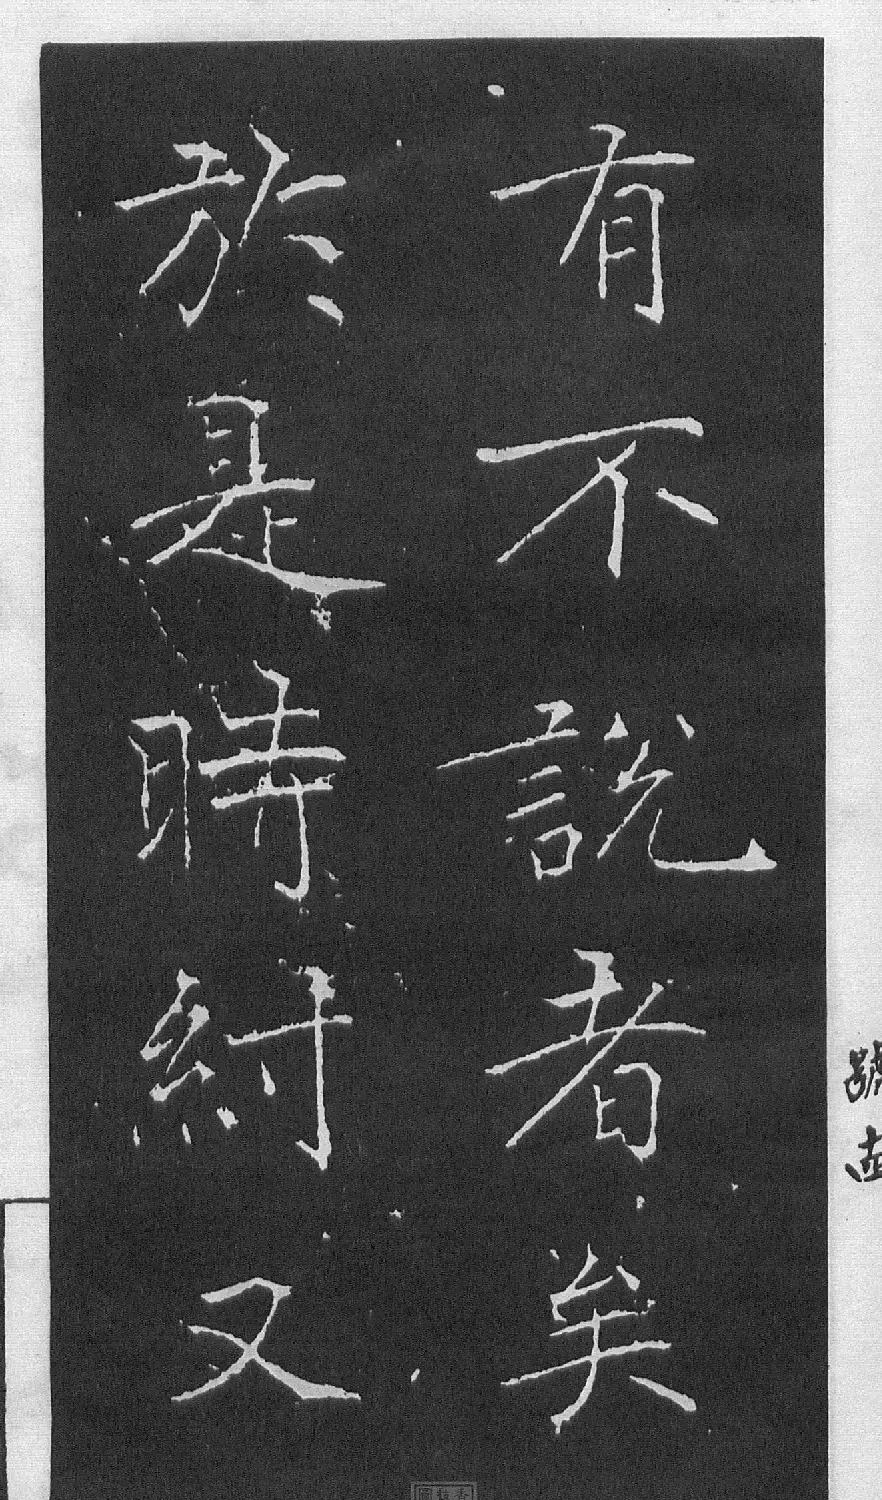 有不說者矣
於是時紂又